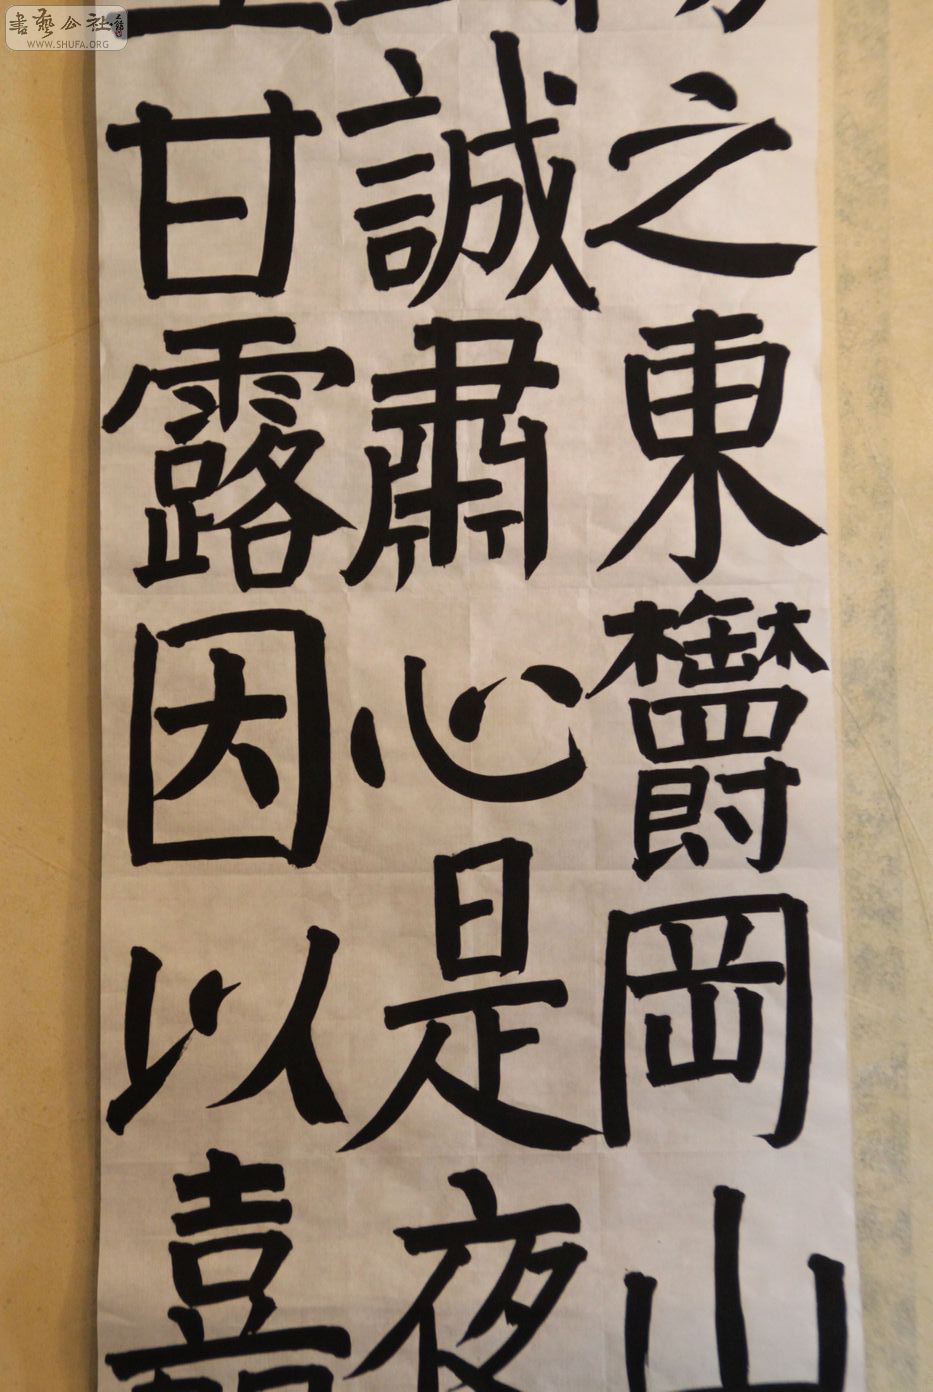 之東欝岡山
誠肅心是夜
甘露因以喜
書藝公社
WWW.SHUFA.ORG